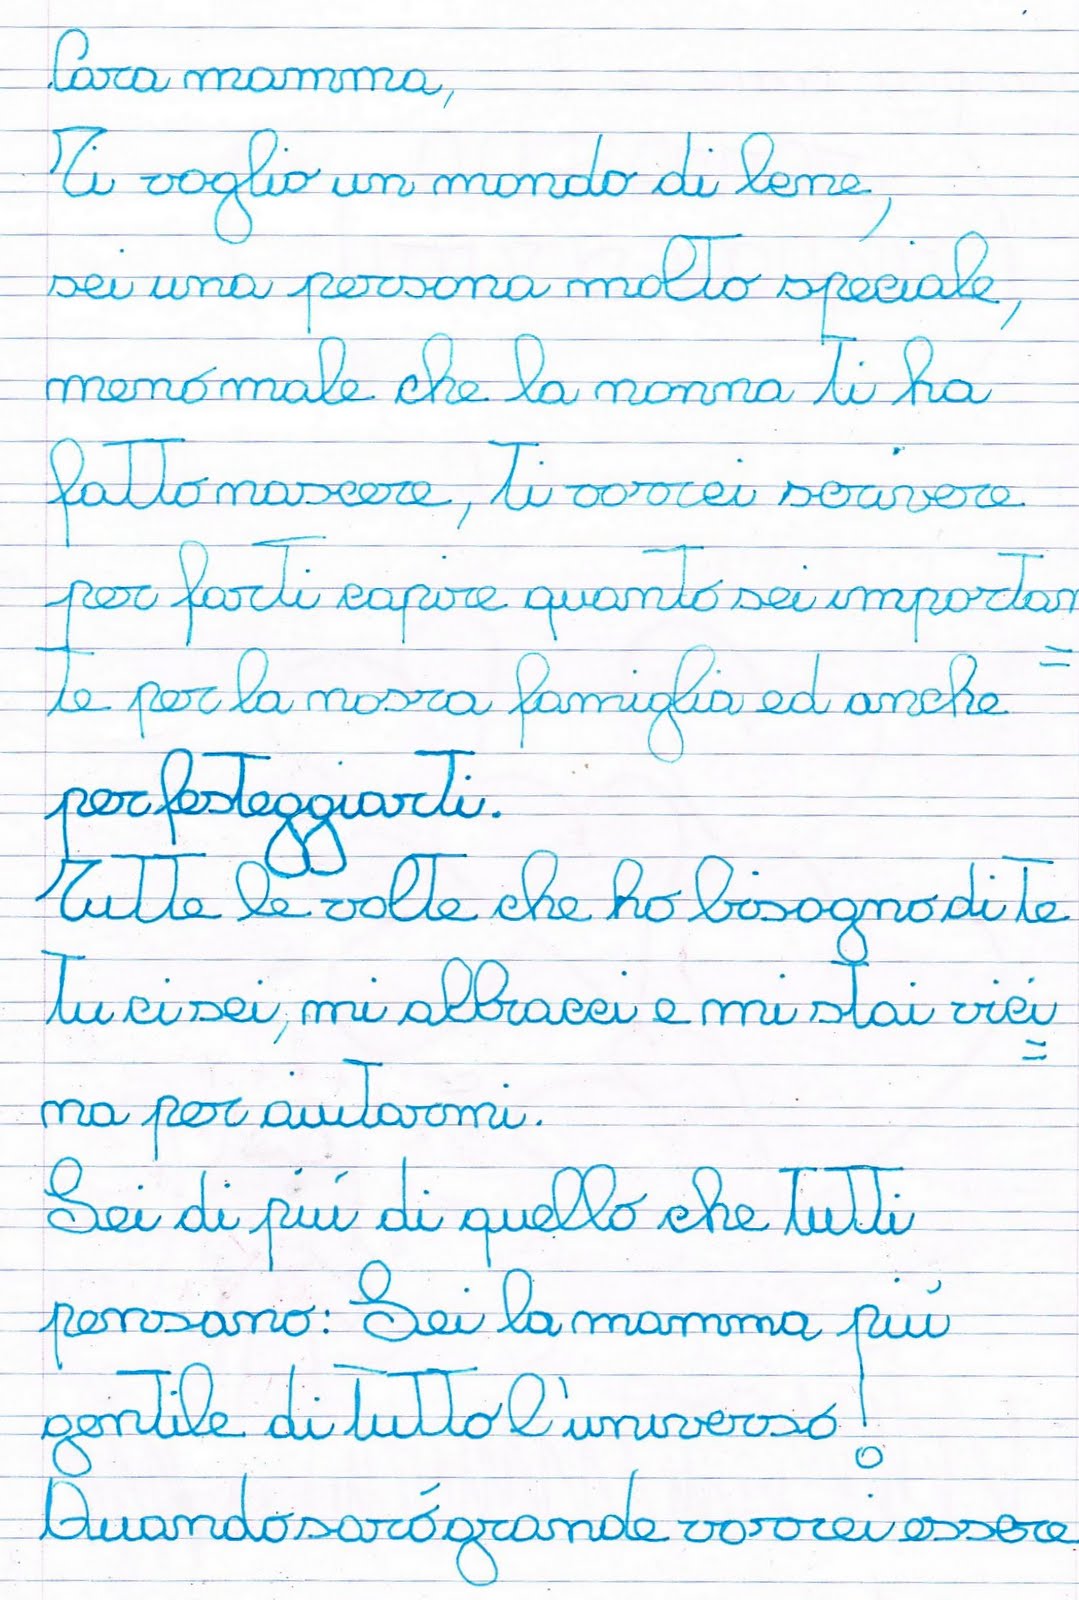 Cara mamma,
Ti voglio un mondo di bene,
sei una persona molto speciale,
meno male che la nonna ti ha
fatto nascere, ti vorrei scrivere
per farti capire quanto sei importan=
te per la nosra famiglia ed anche
per festeggiarti.
Tutte le volte che ho bisogno di te
tu ci sei, mi abbracci e mi stai vici=
na per aiutarmi.
Sei di piú di quello che tutti
pensano: Sei la mamma piú
gentile di tutto l'universo!
Quando saró grande vorrei essere